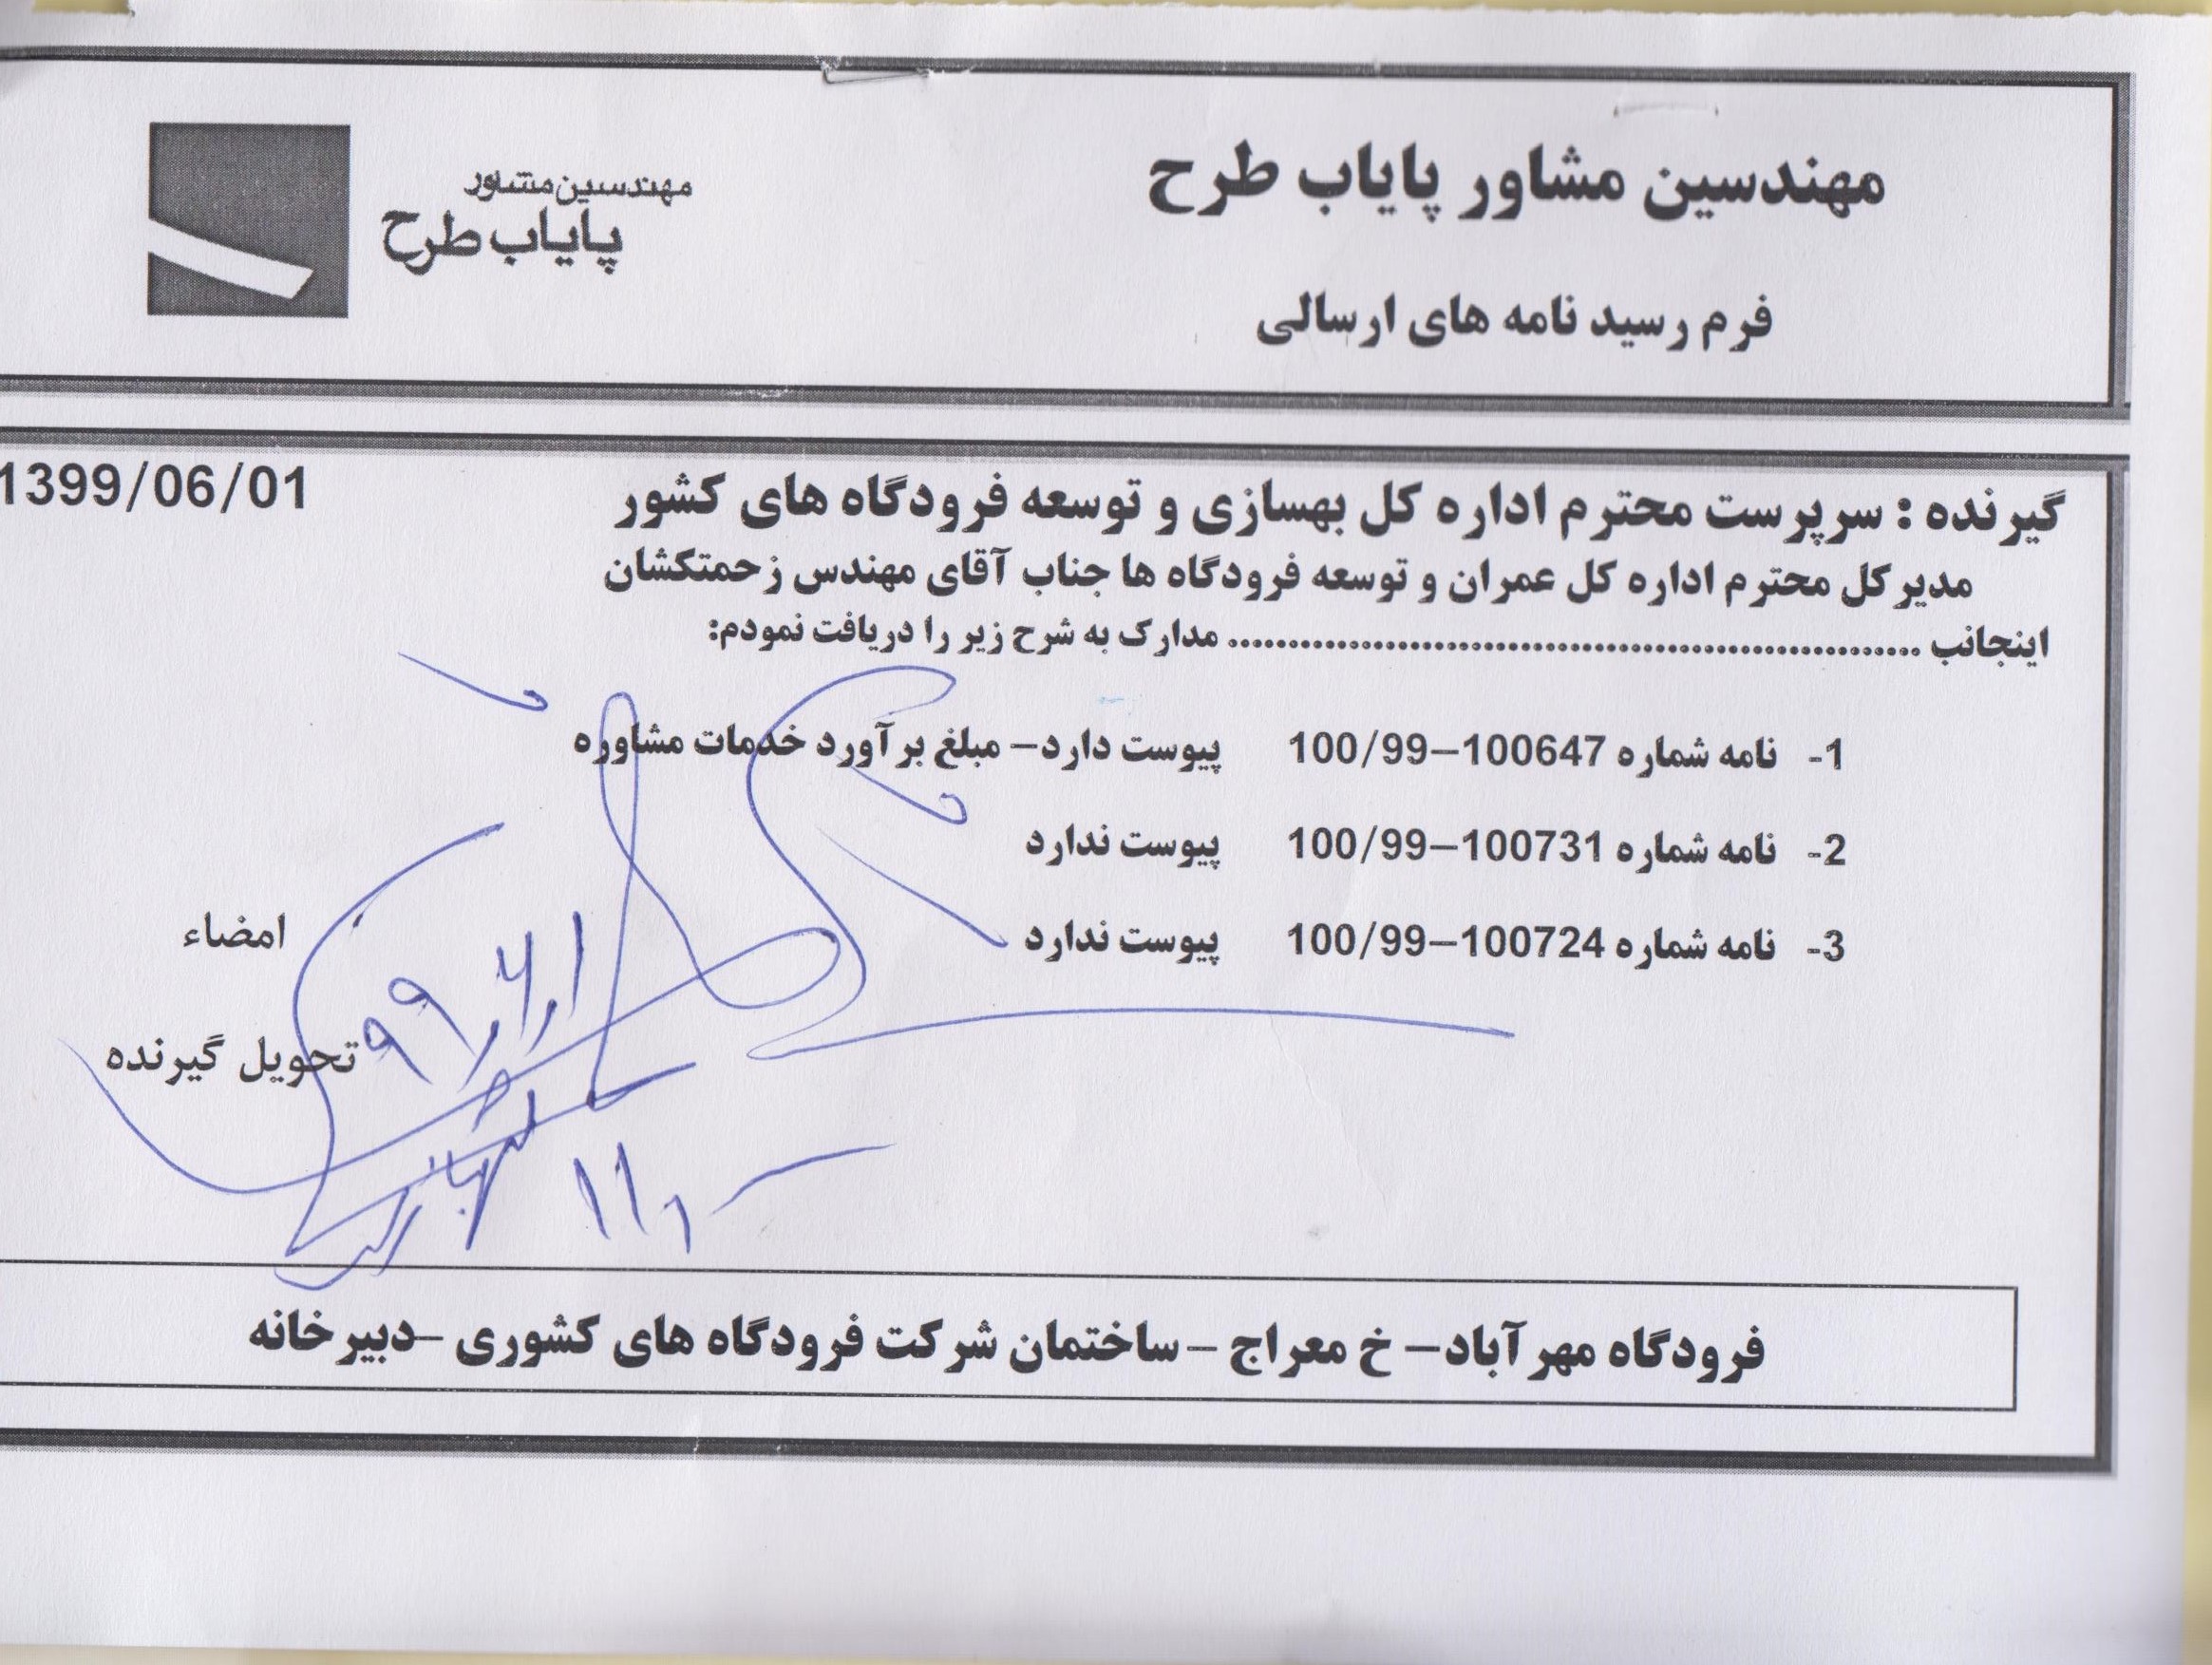 مهندسین مشاور پایاب طرح
مهندسین مشاور
پایاب طرح
فرم رسید نامه های ارسالی
1399/06/01
گیرنده : سرپرست محترم اداره کل بهسازی و توسعه فرودگاه های کشور
مدیر کل محترم اداره کل عمران و توسعه فرودگاه ها جناب آقای مهندس زحمتکشان
اینجانب ........................................................ مدارک به شرح زیر را دریافت نمودم:
1- نامه شماره 100647–100/99 پیوست دارد– مبلغ برآورد خدمات مشاوره
2- نامه شماره 100731–100/99 پیوست ندارد
3- نامه شماره 100724–100/99 پیوست ندارد
امضاء
۹۹,۶,۱
تحویل گیرنده
فرودگاه مهرآباد– خ معراج –ساختمان شرکت فرودگاه های کشوری –دبیرخانه